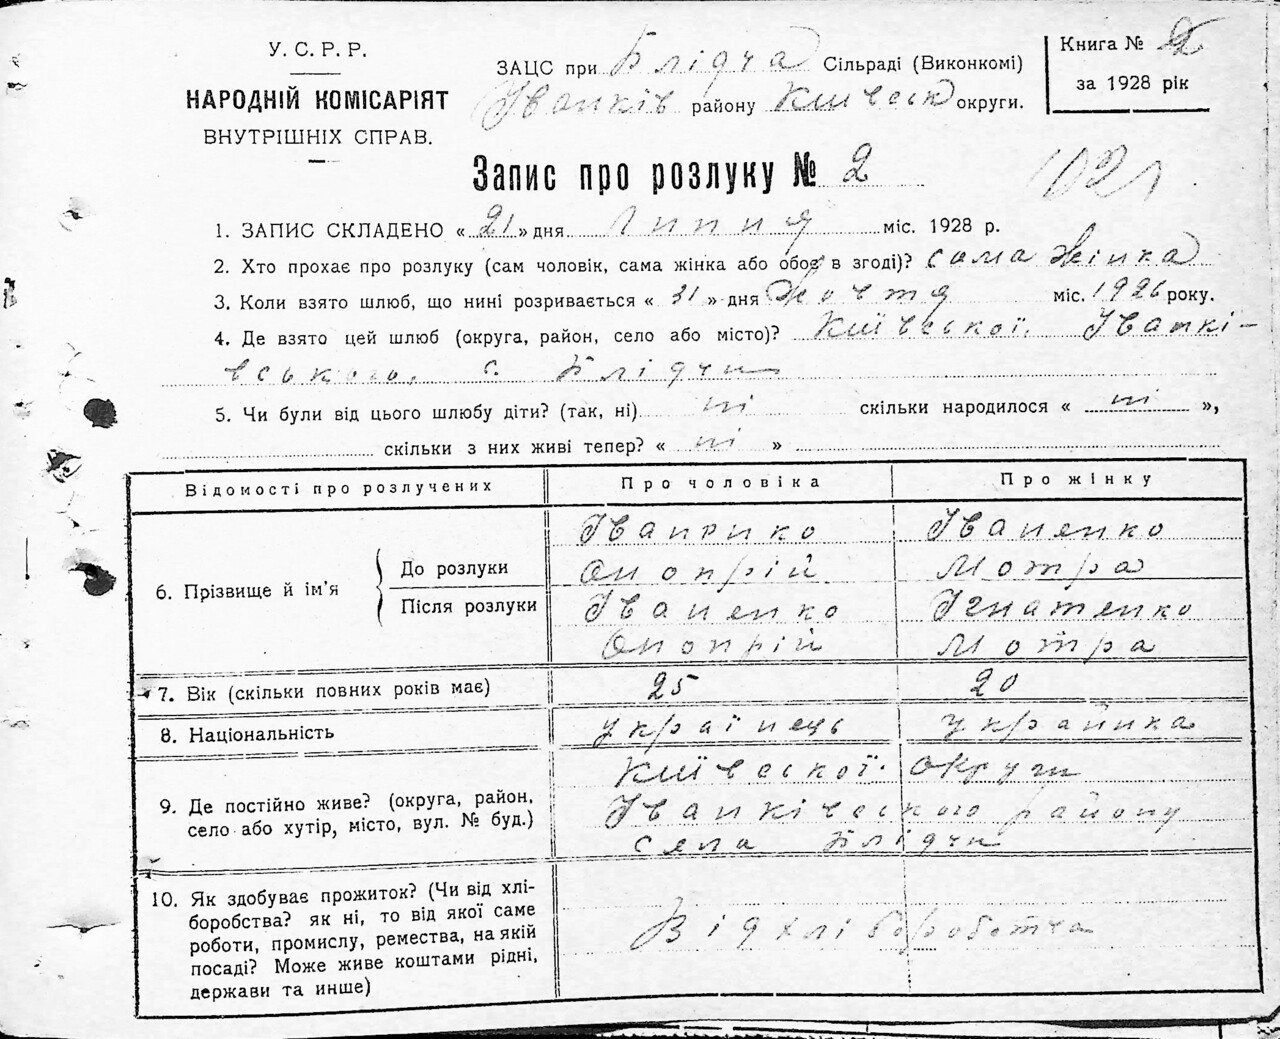 У. С. Р. Р.
НАРОДНІЙ КОМІСАРІЯТ
ВНУТРІШНІХ СПРАВ.
ЗАЦС при Блідча Сільраді (Виконкомі)
Іванків району Київськ округи.
Книга № 2
за 1928 рік
Запис про розлуку № 2
102
1. ЗАПИС СКЛАДЕНО « 21 » дня Липня міс. 1928 р.
2. Хто прохає про розлуку (сам чоловік, сама жінка або обоє в згоді)? сама жінка
3. Коли взято шлюб, що нині розривається « 31 » дня міс. 1926 року.
4. Де взято цей шлюб (округа, район, село або місто)? Київської, Іванкі-
вського, с. Блідчи
5. Чи були від цього шлюбу діти? (так, ні) ні скільки народилося « ні »,
скільки з них живі тепер? « ні »
Відомості про розлучених Про чоловіка Про жінку
6. Прізвище й ім'я
До розлуки
Іваненко Іваненко
Онопрій Мотра
Після розлуки
Іваненко Ігнатенко
Онопрій Мотра
7. Вік (скільки повних років має) 25 20
8. Національність українець українка
9. Де постійно живе? (округа, район,
село або хутір, місто, вул. № буд.)
Київської округи
Іванківського району
села Блідчи
10. Як здобуває прожиток? (Чи від хлі-
боробства? як ні, то від якої саме
роботи, промислу, ремества, на якій
посаді? Може живе коштами рідні,
держави та инше)
Від хліборобства